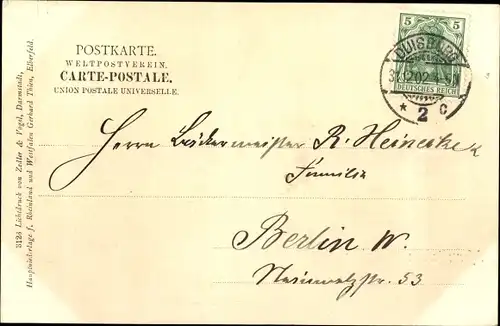 POSTKARTE.
WELTPOSTVEREIN.
CARTE-POSTALE.
UNION POSTALE UNIVERSELLE.
5 5
DUISBURG
31.12.02.
* 2 c
DEUTSCHES REICH
Herrn Bäckermeister R. Heinecke u
Familie
Berlin W.
str. 53
3124 Lichtdruck von Zedler & Vogel, Darmstadt,
Hauptniederlage f. Rheinland und Westfalen Gerhard Thien, Elberfeld.